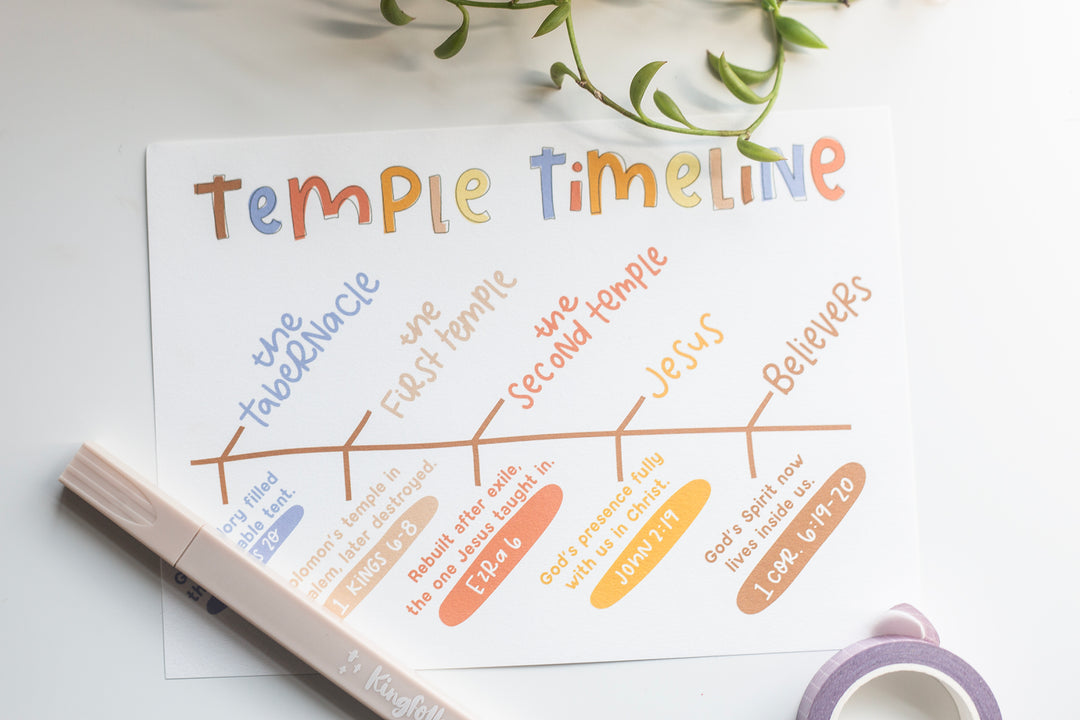 Temple Timeline
the
Tabernacle
the
First Temple
the
Second Temple
Jesus
Believers
filled
tent.
20
temple in
later destroyed.
1 Kings 6-8
Rebuilt after exile,
the one Jesus taught in.
Ezra 6
God's presence fully
with us in Christ.
John 2:19
God's Spirit now
lives inside us.
1 Cor. 6:19-20